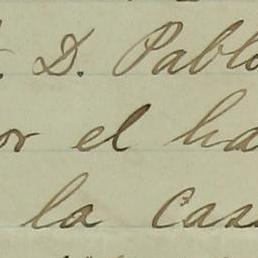 D. Pablo
or el ha
la cas